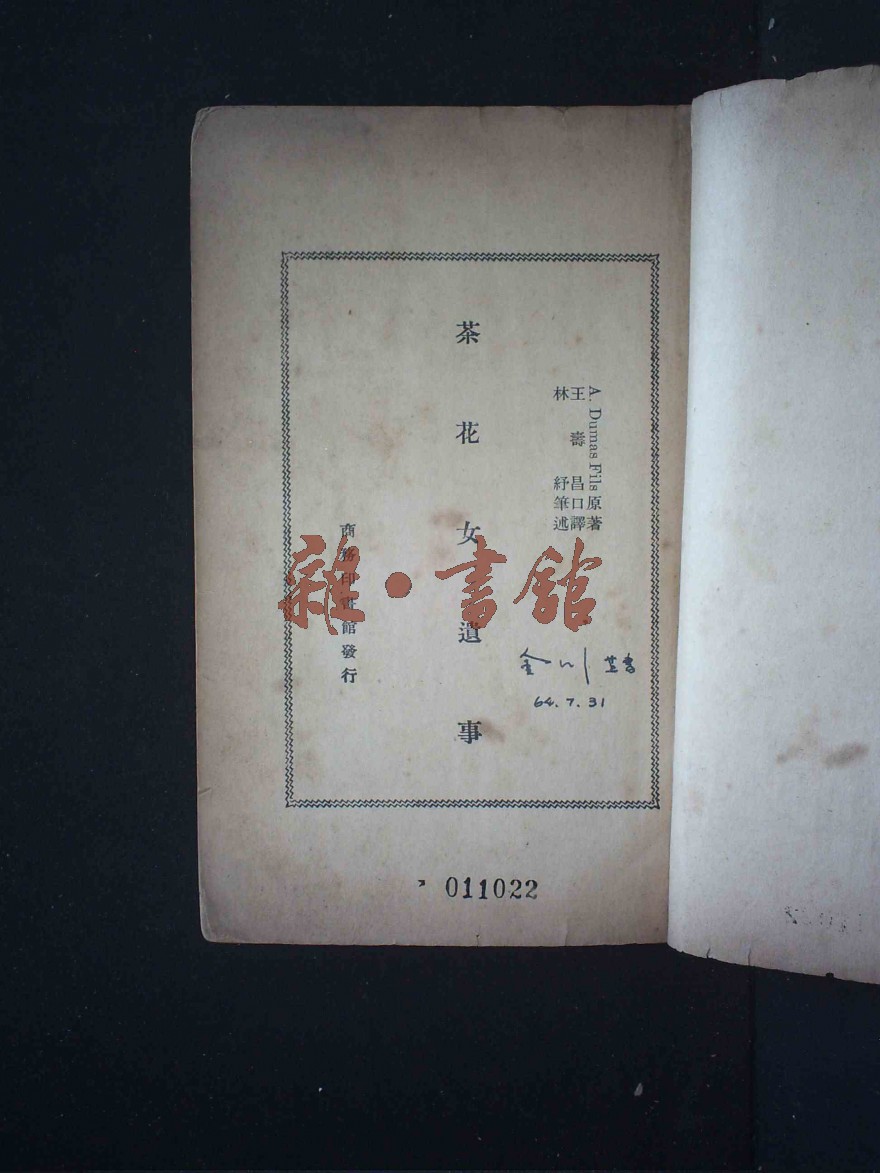 A. Dumas Fils 原著
王壽昌口譯
林紓筆述
茶花女遺事
商務印書館發行
雜·書館
金川
64.7.31
011022